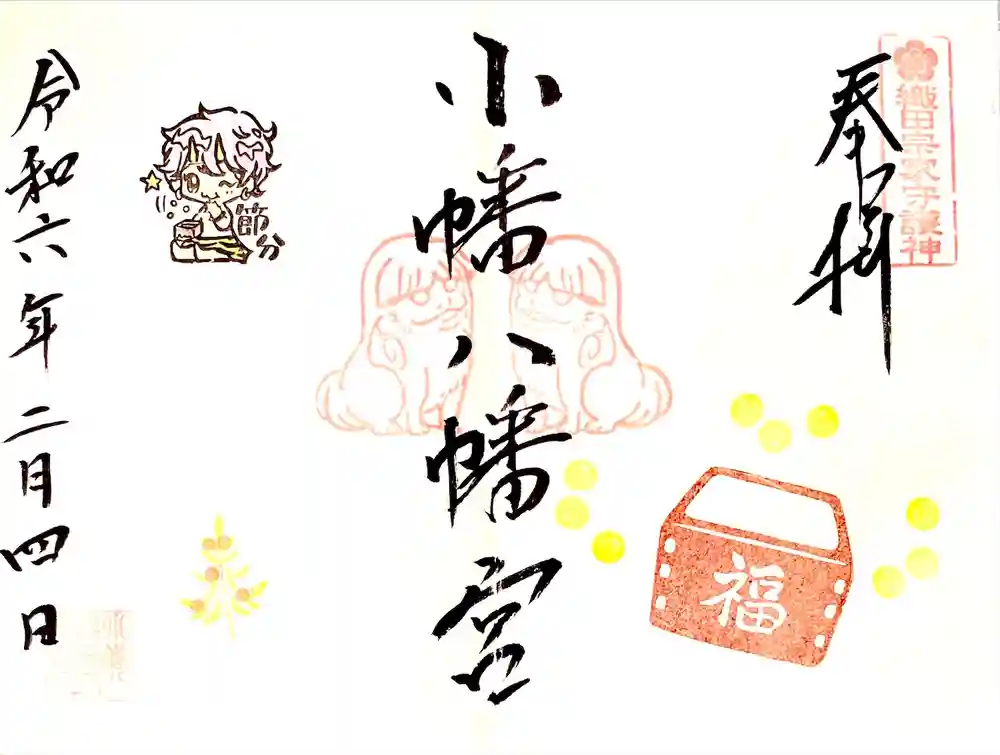 織田宗家守護神
奉拝
小幡八幡宮
福
節分
令和六年二月四日